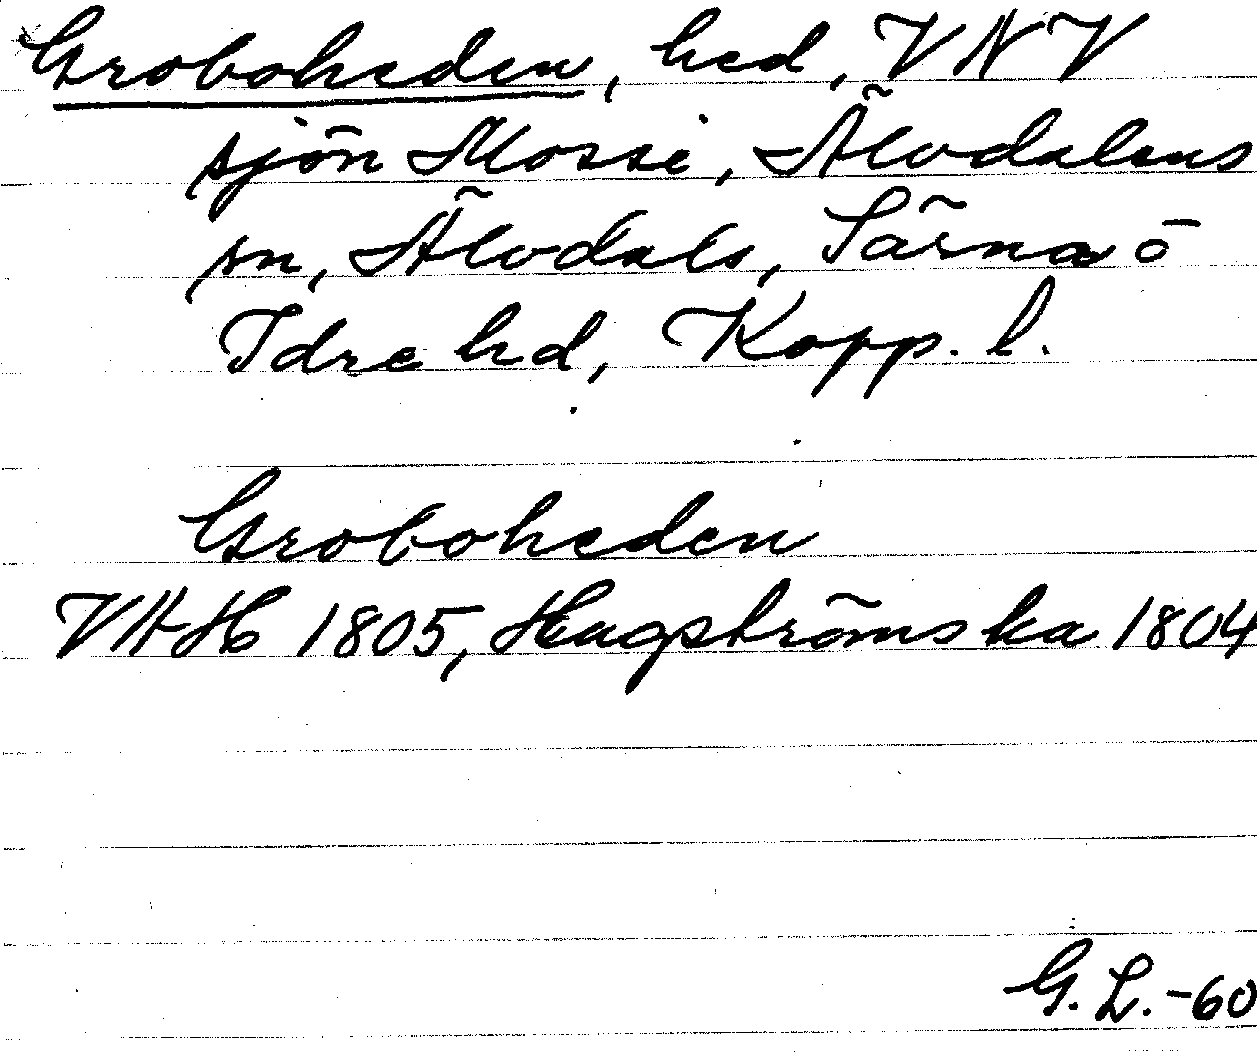 Groboheden, hed, VNV
sjön Mossi, Älvdalens
sn, Älvdals, Särna o
Idre hd, Kopp. l.
Groboheden
VHH 1805, Hagströmska 1804
G. L. -60